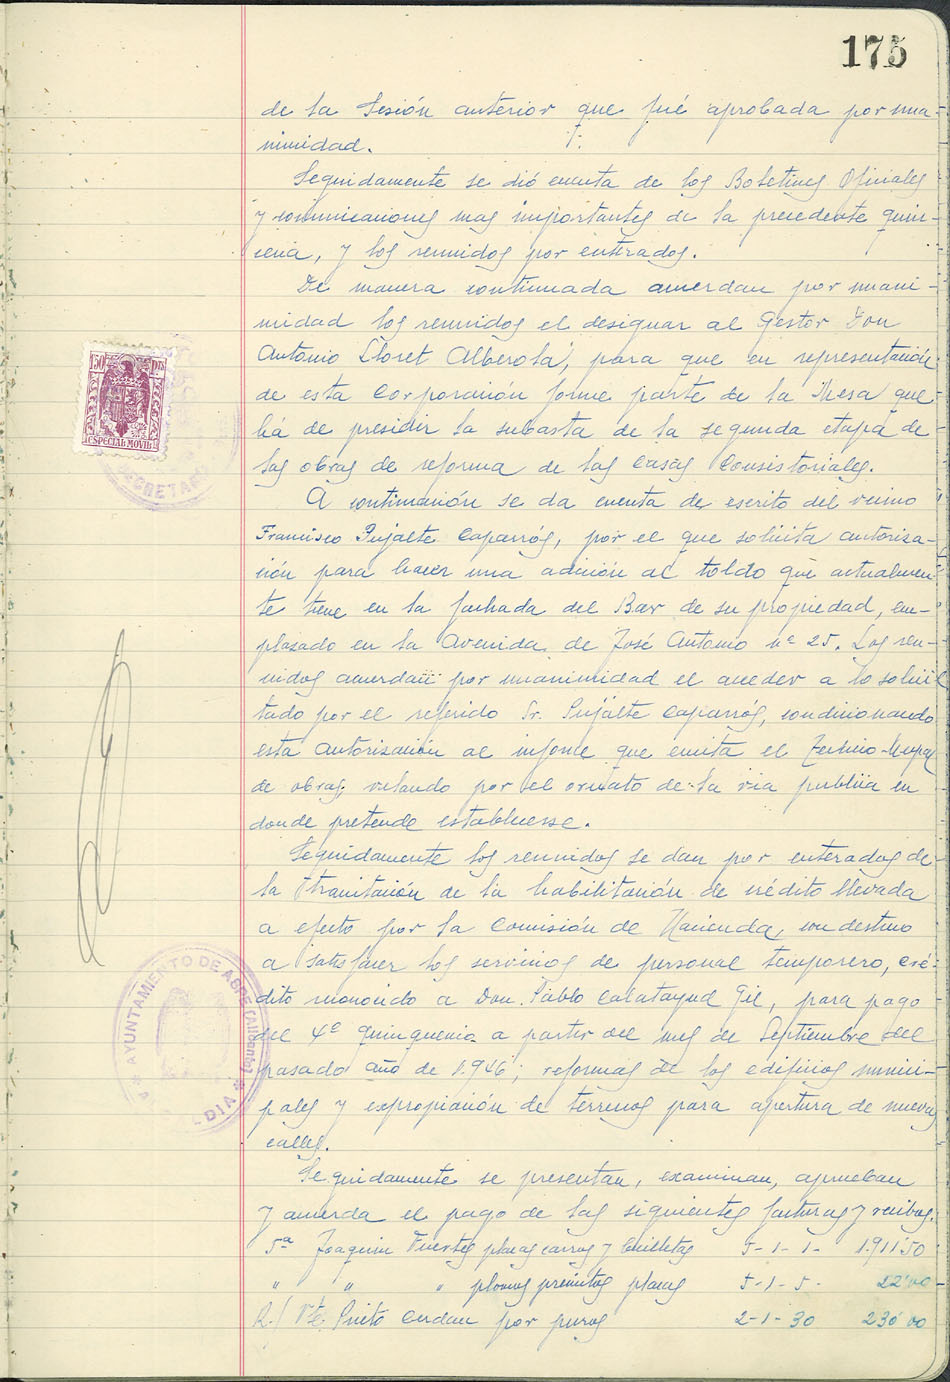 175
de la Sesión anterior que fué aprobada por una-
nimidad.
Seguidamente se dió cuenta de los Boletines Oficiales
y comunicaciones mas importantes de la precedente quin-
cena, y los reunidos por enterados.
De manera continuada acuerdan por unani-
midad los reunidos el designar al Gestor Don
Antonio Lloret Alberola, para que en representación
de esta Corporación forme parte de la Mesa que
há de presidir la subasta de la segunda etapa de
las obras de reforma de las Casas Consistoriales.
A continuación se da cuenta de escrito del vecino
Francisco Pujalte Caparrós, por el que solicita autoriza-
ción para hacer una adición al toldo que actualmen-
te tiene en la fachada del Bar de su propiedad, em-
plazado en la Avenida de José Antonio nº 25. Los reu-
nidos acuerdan por unanimidad el acceder a lo solici
tado por el referido Sr. Pujalte Caparrós, condicionando
esta autorización al informe que emita el Técnico-Mupal
de obras, velando por el ornato de la via publica en
donde pretende establecerse.
Seguidamente los reunidos se dan por enterados de
la tramitación de la habilitación de crédito llevada
a efecto por la Comisión de Hacienda, con destino
a satisfacer los servicios de personal temporero, cré-
dito reconocido a Don Pablo Calatayud Gil, para pago
del 4º quinquenio a partir del mes de Septiembre del
pasado año de 1.946; reformas de los edificios munici-
pales y expropiación de terrenos para apertura de nuevas
calles.
Seguidamente se presentan, examinan, aprueban
y acuerda el pago de las siguientes facturas y recibos.
5ª Joaquin Fuertes placas carros y bicicletas 5-1-1- 1.911'50
" " " plomos precintos placas 5-1-5- 22'00
R./ Vte Prieto Cerdan por puros 2-1-30 230'00
1'50 PTS
ESPECIAL MOVIL
SECRETARIA
AYUNTAMIENTO DE ASPE (Alicante)
ALCALDIA